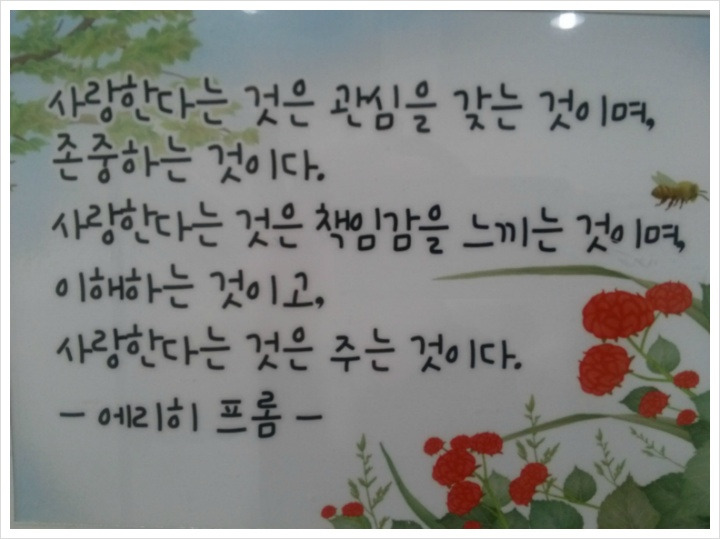 사랑한다는 것은 관심을 갖는 것이며,
존중하는 것이다.
사랑한다는 것은 책임감을 느끼는 것이며,
이해하는 것이고,
사랑한다는 것은 주는 것이다.
- 에리히 프롬 -